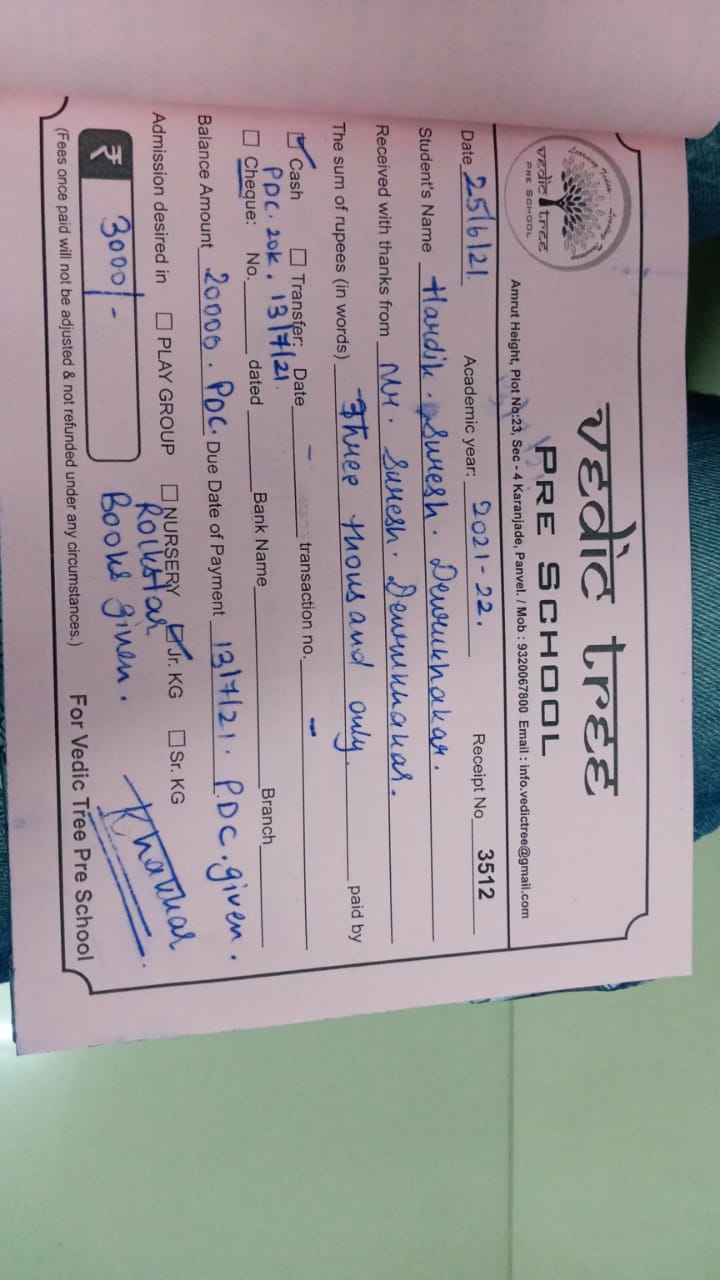 vedic tree
PRE SCHOOL
vedic tree
PRE SCHOOL
Amrut Height, Plot No:23, Sec - 4 Karanjade, Panvel. / Mob : 9320067800 Email : info.vedictree@gmail.com
Date 25/6/21. Academic year: 2021-22. Receipt No 3512
Student's Name Hardik. Suresh. Devrukhakar.
Received with thanks from Mr. Suresh. Devrukhakar.
The sum of rupees (in words) Three thousand only. paid by
Cash Transfer: Date - transaction no. -
PDC. 20k. 13/7/21.
Cheque: No. dated Bank Name Branch
Balance Amount 20000. PDC. Due Date of Payment 13/7/21. P.D.C. given.
Admission desired in PLAY GROUP NURSERY Jr. KG Sr. KG
Rockstar
₹ 3000/- Books given.
For Vedic Tree Pre School
(Fees once paid will not be adjusted & not refunded under any circumstances.)